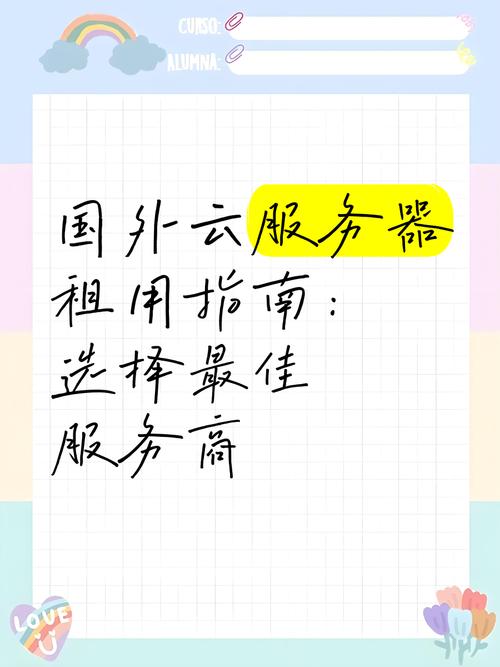 CURSO:
ALUMNA:
国外云服务器
租用指南：
选择最佳
服务商
LOVE
U